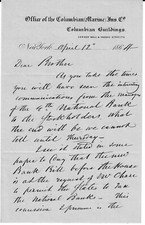 Office of the Columbian (Marine) Ins. Co.
Columbian Buildings
New York, April 12 1864
Dear Brother
As you take the Times
you will have seen the
communication from the
of the 4th National Bank
to the Stockholders what
the end will be we cannot
tell until Thursday.
Leu is stated in some
paper to day that the new
Bank Bill before the House
is at the request of Mr Chase
to permit the States to tax
the National Banks - This
concession I presume is the